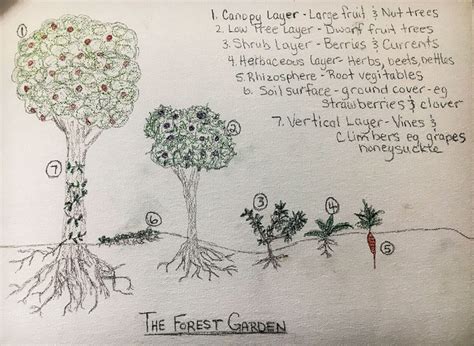 1. Canopy Layer - Large fruit & Nut trees
2. Low Tree Layer - Dwarf fruit trees
3. Shrub Layer - Berries & Currents
4. Herbaceous layer - Herbs, beets, nettles
5. Rhizosphere - Root vegitables
6. Soil surface - ground cover - eg
Strawberries & clover
7. Vertical Layer - Vines &
Climbers eg grapes
honeysuckle
1
2
7
3
4
6
5
THE FOREST GARDEN